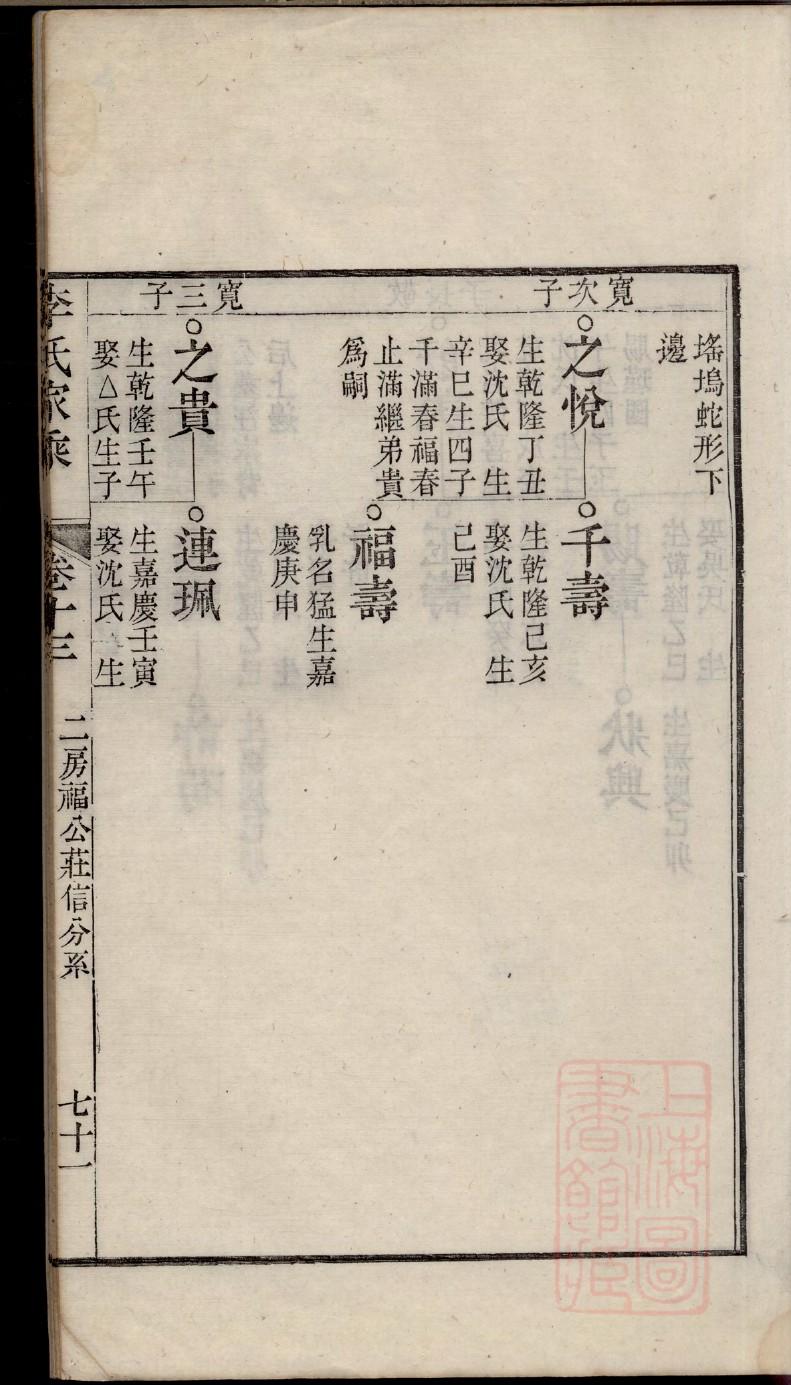 瑤塢蛇形下
邊
寬次子
之悅
生乾隆丁丑
娶沈氏 生
辛巳生四子
千滿春福春
止滿繼弟貴
爲嗣
千壽
生乾隆己亥
娶沈氏 生
己酉
福壽
乳名猛生嘉
慶庚申
寬三子
之貴
生乾隆壬午
娶△氏生子
連珮
生嘉慶壬寅
娶沈氏 生
李氏家乘
卷十三
二房福公莊信分系
七十一
上海圖
書館藏